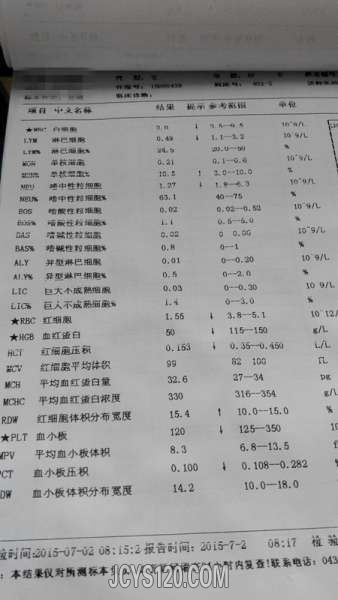 项目 中文名称 结果 提示 参考范围 单位
★WBC 白细胞 2.0 ↓ 3.5--9.5 10^9/L
LYM 淋巴细胞 0.49 ↓ 1.1--3.2 10^9/L
LYM% 淋巴细胞% 24.5 20.0--50 %
MON 单核细胞 0.21 0.1--0.6 10^9/L
MON% 单核细胞% 10.5 ↑ 3.0--10.0 %
NEU 嗜中性粒细胞 1.27 ↓ 1.8--6.3 10^9/L
NEU% 嗜中性粒细胞% 63.1 40--75 %
EOS 嗜酸性粒细胞 0.02 0.02--0.52 10^9/L
EOS% 嗜酸性粒细胞% 1.1 %
BAS 嗜碱性粒细胞 0.02 10^9/L
BAS% 嗜碱性粒细胞% 0.8 0--1 %
ALY 异型淋巴细胞 0.01 0--0.20 10^9/L
ALY% 异型淋巴细胞% 0.5 0--2.0 %
LIC 巨大不成熟细胞 0.03 0--0.30 10^9/L
LIC% 巨大不成熟细胞% 1.4 0--3.0 %
★RBC 红细胞 1.55 ↓ 3.8--5.1 10^12/
★HGB 血红蛋白 50 ↓ 115--150 g/L
HCT 红细胞压积 0.153 ↓ 0.35--0.450 L/L
MCV 红细胞平均体积 99 82--100 fL
MCH 平均血红蛋白量 32.6 27--34 pg
MCHC 平均血红蛋白浓度 330 316--354 g/
RDW 红细胞体积分布宽度 15.4 ↑ 10.0--15.0 %
★PLT 血小板 120 ↓ 125--350 10
MPV 平均血小板体积 8.3 6.8--13.5 f
PCT 血小板压积 0.100 ↓ 0.108--0.282 %
DW 血小板体积分布宽度 14.2 10.0--18.0
验时间:2015-07-02 08:15:2 报告时间: 2015-7-2 08:17 检验
: 本结果仅对所测标本负 时内复查!联系电话: 043
JCYS120.COM